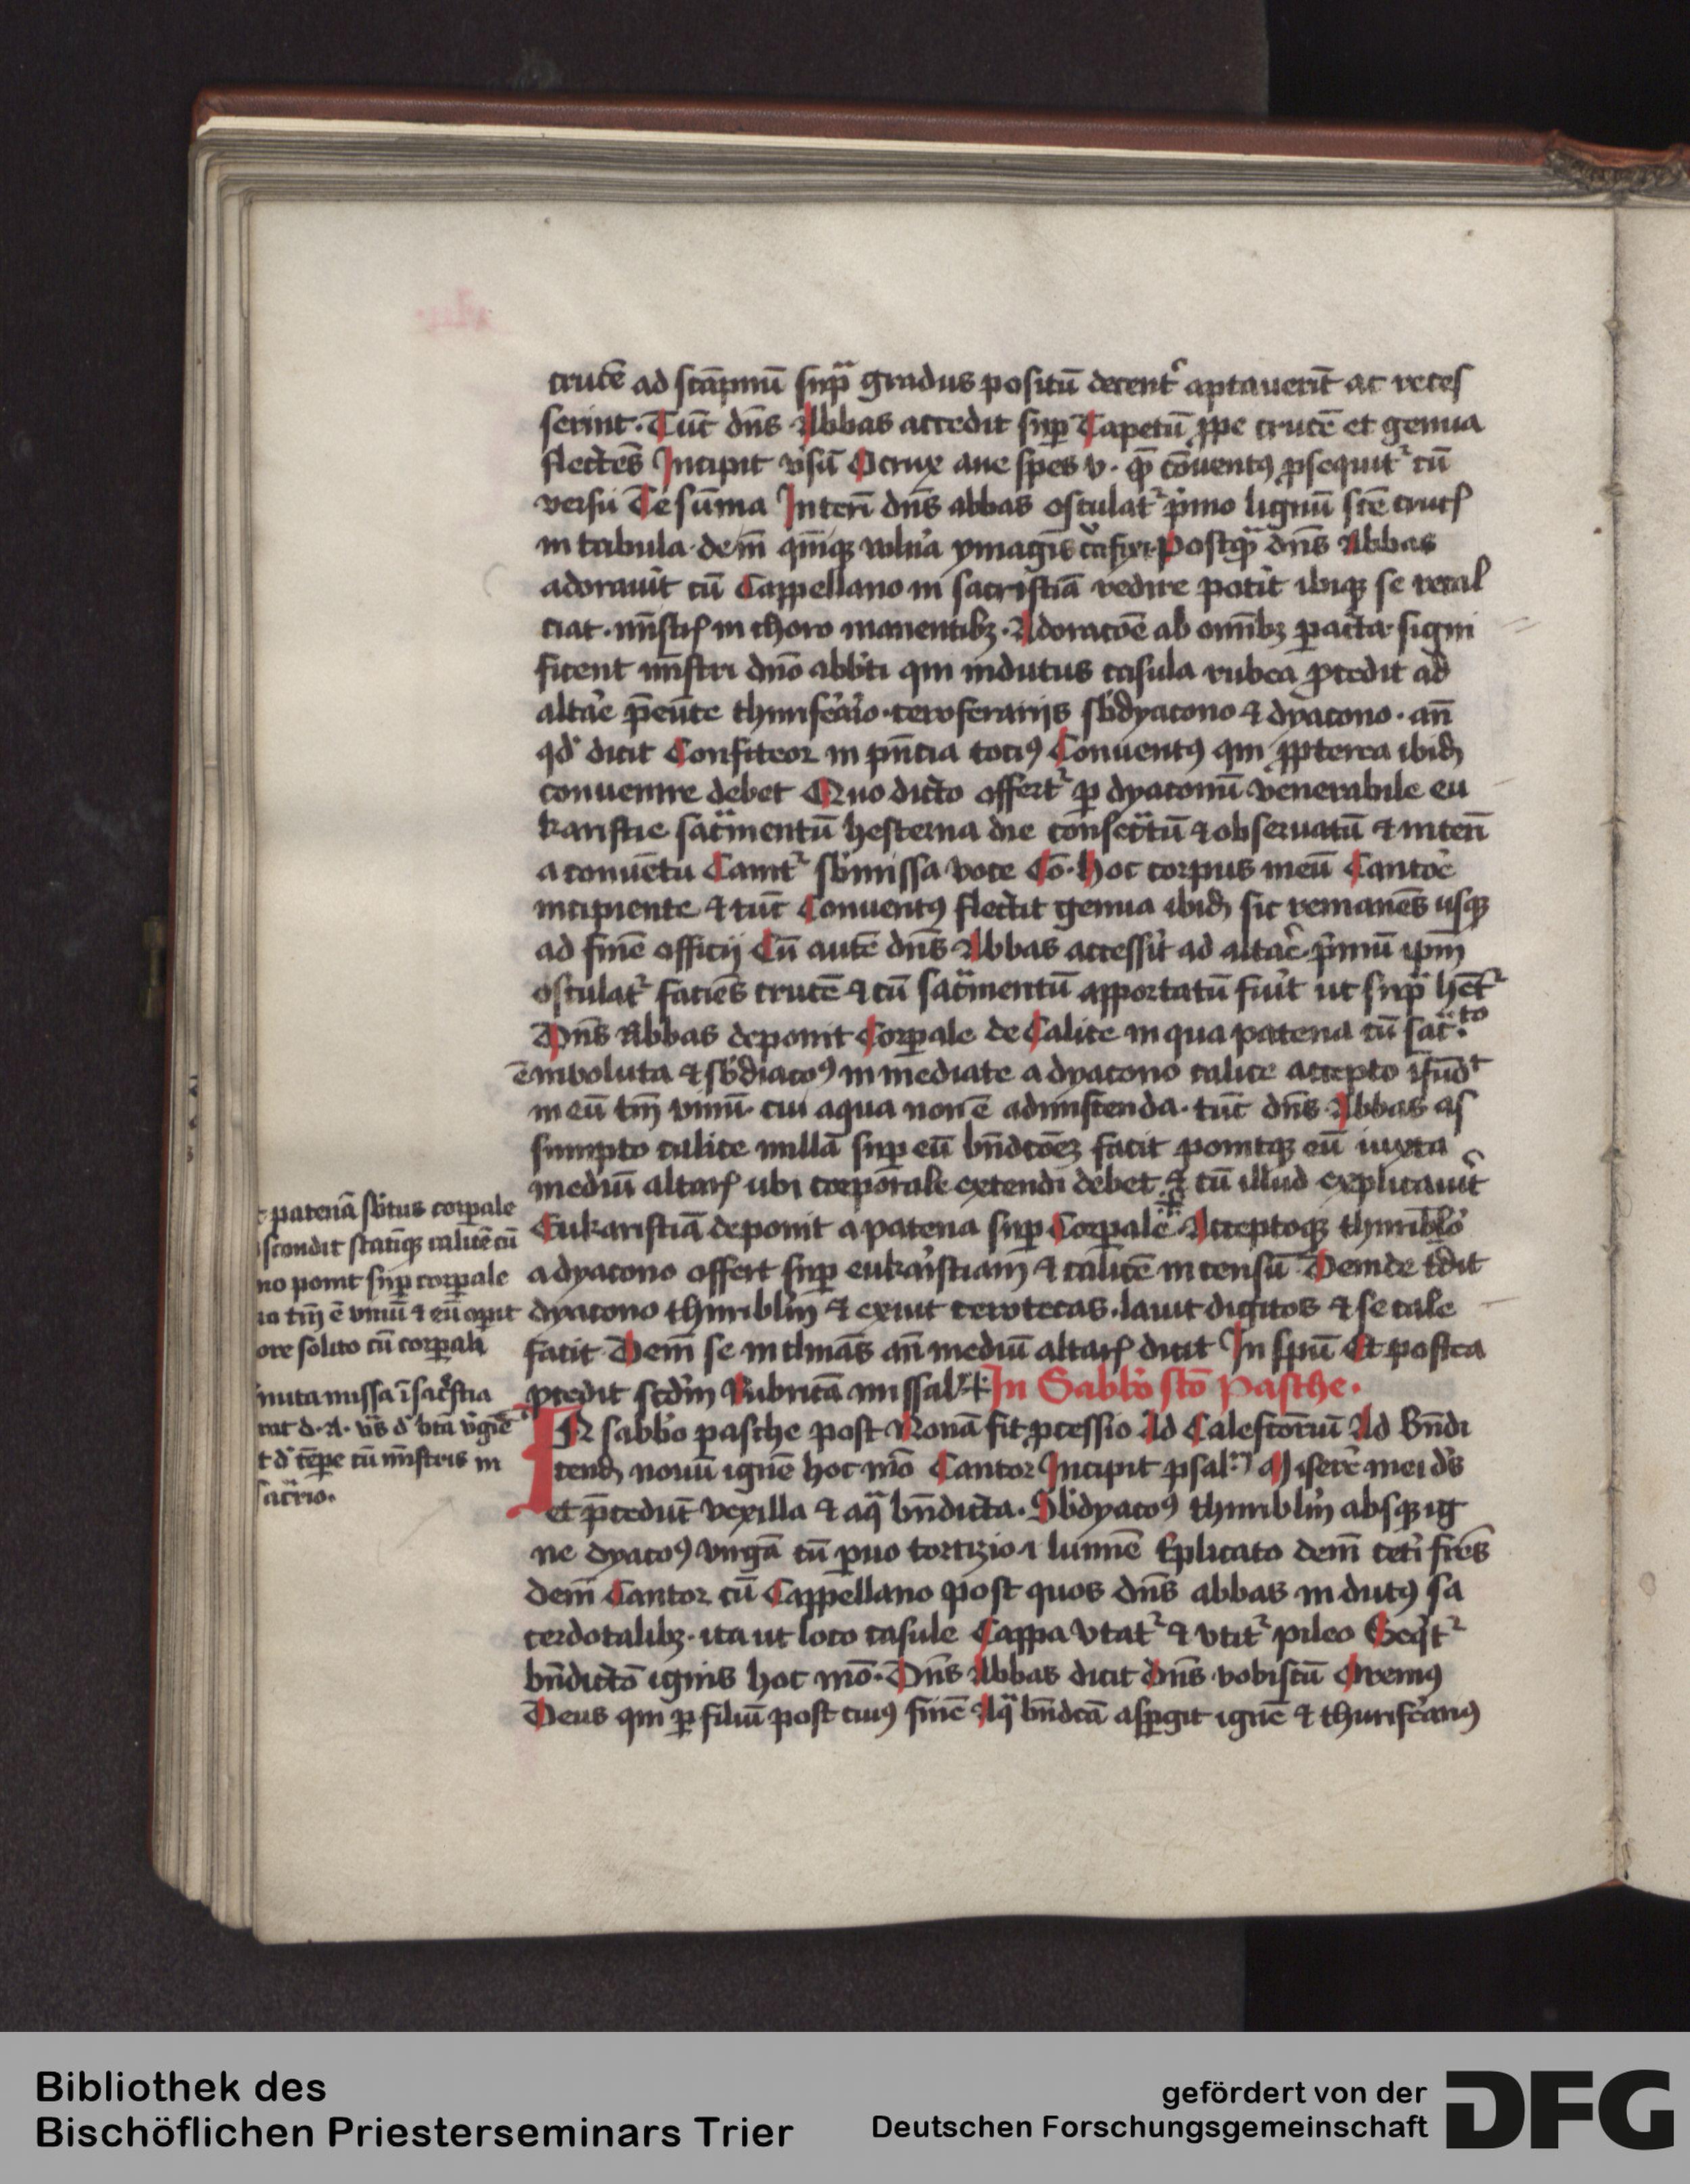 crucē ad scāpnū sup̄ gradus positū decent᷑ aptauerīt ac recef
serint. Tūc dn̄s Abbas accedit sup Tapetū ꝓpe crucē et genua
flectēs Incipit v̓sū O crux aue spes v. qē cōuentꝰ ꝓsequit᷑ cū
versu Te sūma Interī dn̄s abbas osculat᷑ p̓mo lignū scē crucꝭ
in tabula. dein̄ qīnqꝫ vuln̓a ymaginis Postqᷓ dn̄s Abbas
adorauit cū Cappellano in sacristiā redire pot̓it ibiqꝫ se recal
ciat. mīstrꝭ in choro manentibꝫ. Adoracōe ab om̄ibꝫ ꝑacta signi
ficent mīstri dn̄o abb̓ti qui indutus casula rubea ꝓcedit ad
altar̓e p̄eūte thurifer̓ario. ceroferarijs sb̓dyacono ⁊ dyacono. an̄
qd̓ dicit Confiteor in pn̄cia tociꝰ Conuentꝰ qui ꝓpterea ibid̄
conuenire debet Quo dicto offert᷑ ꝑ dyaconū venerabile eu
karistie sacᷓmentū hesterna die cōsecᷓtū ⁊ obseruatū ⁊ interī
a conuētu Canit᷑ sb̓missa voce Cō. Hoc corpus meū Cantor̓e
incipiente ⁊ tūc Conuentꝰ flectit genua ibid̄ sic remanēs usqꝫ
ad finē officij Cū autē dn̄s Abbas accessit ad altar̓e p̓mū ip̄m
osculat᷑ faciēs crucē ⁊ cū sacᷓmentū apportatū fu̓it ut supᷓ het᷑
Dn̄s Abbas deponit Corꝑale de Calice in qua patena cū sacᷓ.to
ē inuoluta ⁊ sb̓diacoꝰ inmediate a dyacono calice accepto īfūdt
in eū tm̄ vinū. cui aqua non ē admiscenda. tūc dn̄s Abbas as
sumpto calice nullā sup eū bn̄dcōeꝫ facit ponitqꝫ eū iuxta
mediū altarꝭ ubi corporale extendi debet ⁊ cū illud explicauit
Eukaristiā deponit a patena sup Corꝑale. Acceptoqꝫ thuribl̓o
a dyacono offert sup eukar̓istiam ⁊ calicē incensū Deinde t̓dit
dyacono thuribl̓m ⁊ exiut cerotecas. lauit digitos ⁊ se cale
facit Dein̄ se inclinās an̄ mediū altarꝭ dicit In spū Et postea
ꝓcedit scd̓m Rubricā missal᷑ In Sabb̓o sct̄o Pasche.
IN sabb̓o pasche post Nonā fit ꝓcessio Ad Calefactoriū Ad Bn̄di
cend̄ nouū ignē hoc mō Cantor Incipit psal. Miser̓e mei ds̄
et p̄cedūt vexilla ⁊ aqᷓ bn̄dicta. Sb̓dyacoꝰ thuribl̓m absqꝫ ig
ne dyacoꝰ virgā cū ꝑuo torticio ī luminē Eplicato dein̄ cet̓i frēs
dein̄ Cantor cū Cappellano post quos dn̄s abbas indutꝰ sa
cerdotalibꝫ. ita ut loco casule Cappa vtat᷑ ⁊ vtit᷑ pileo Seqt᷑
bn̄dictō ignis hoc mō. Dn̄s Abbas dicit dn̄s vobiscū Oremꝰ
Deus qui ꝑ filiū post cuiꝰ finē Aqᷓ bn̄dcā asꝑgit ignē ⁊ thurifer̓ariꝰ
patenā sb̓tus corꝑale
scondit statiqꝫ calicē cū
no ponit sup corꝑale
ua tm̄ ē vinū ⁊ eū oꝑit
ore solito cū corꝑali
nuta missa ī sacᷓstia
rat d. A. vs̄ d̓ btā v̓gīe
t d̓ tēpe cū mīstris in
sacᷓrio.
Bibliothek des
Bischöflichen Priesterseminars Trier
gefördert von der
Deutschen Forschungsgemeinschaft
DFG